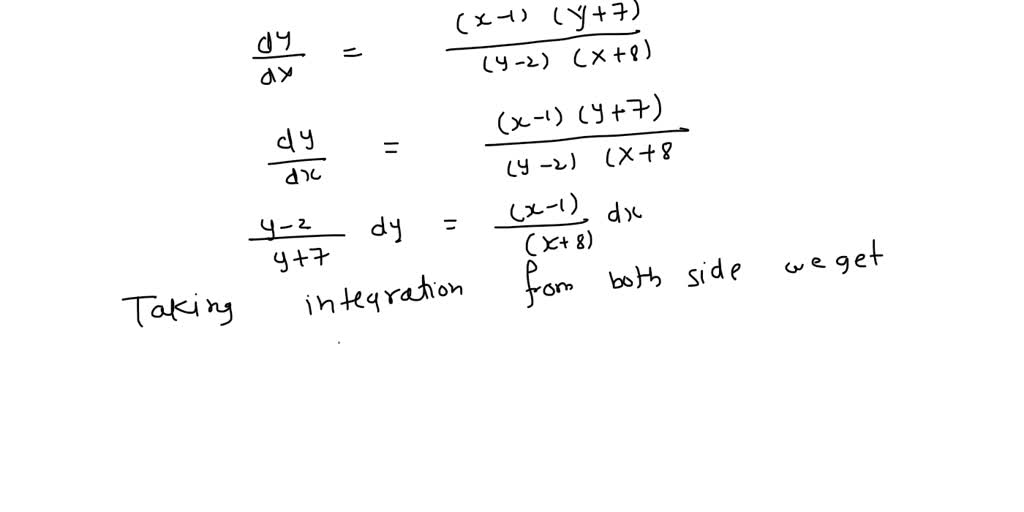 dy/dx = (x-1) (y+7) / (y-2) (x+8)
dy/dx = (x-1) (y+7) / (y-2) (x+8
y-2 / y+7 dy = (x-1) / (x+8) dx
Taking integration from both side we get